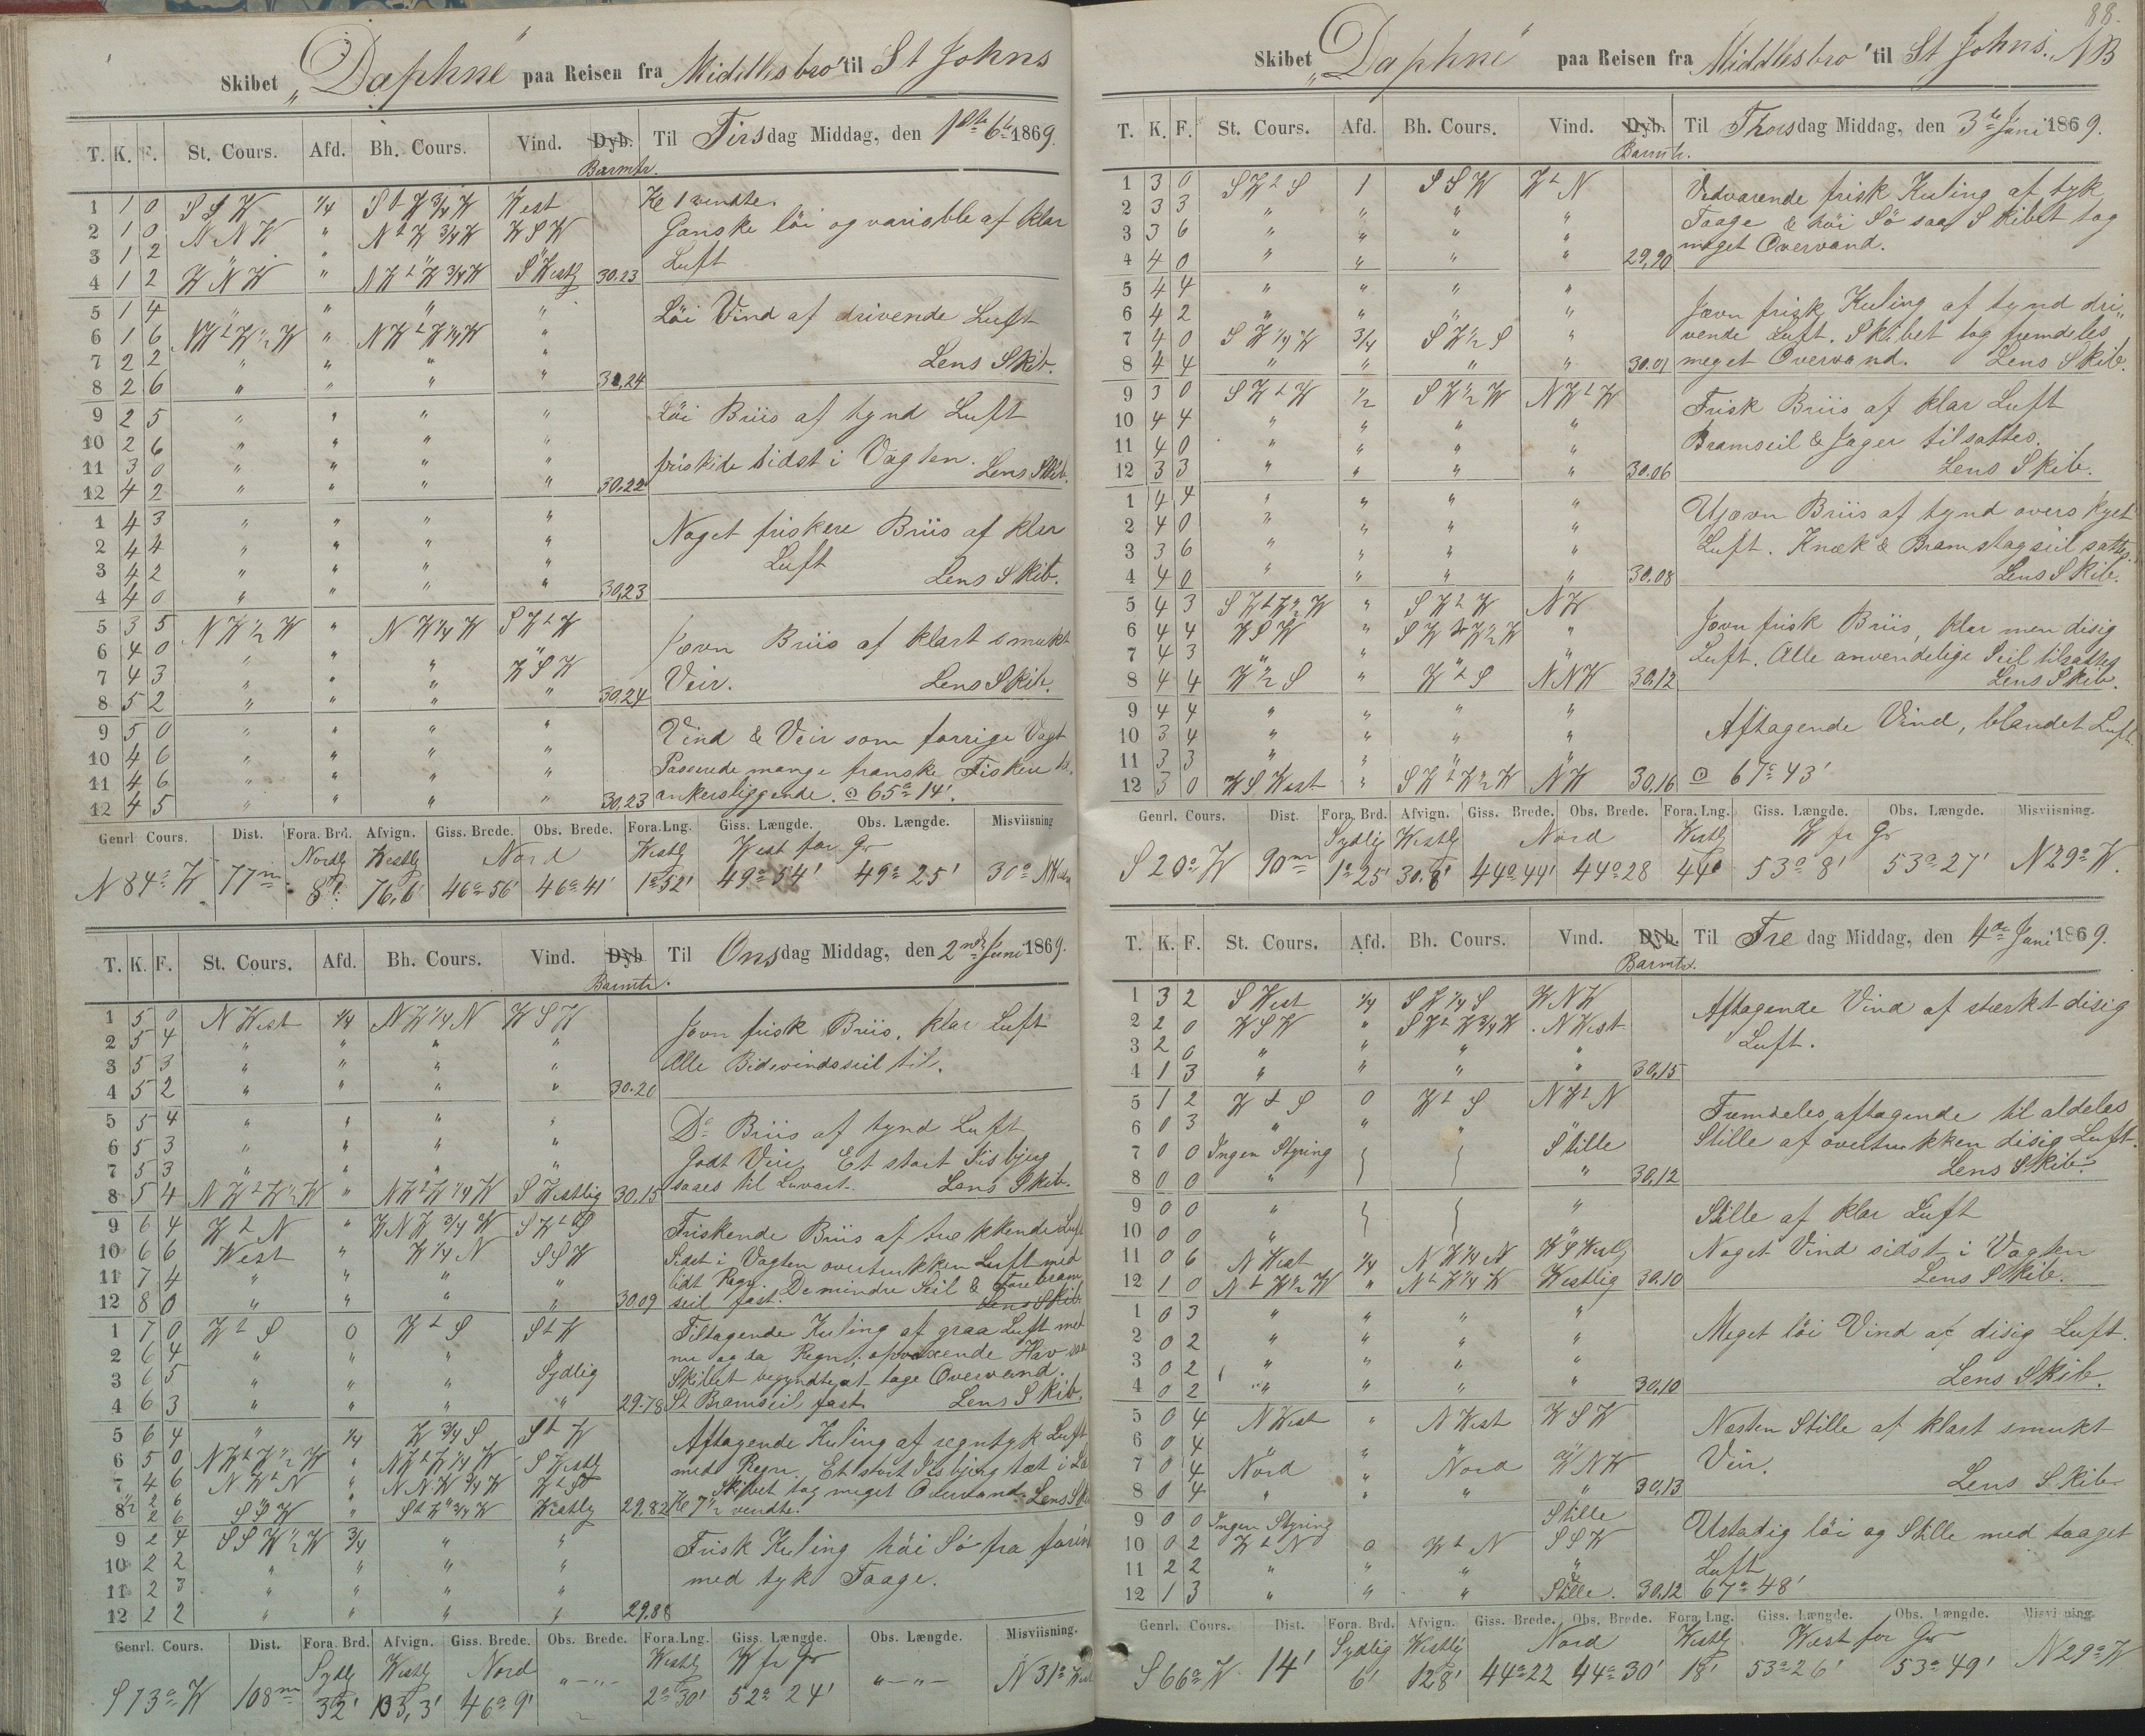 Skibet „Daphne" paa Reisen fra Middlesbro' til St Johns
T. K. F. St. Cours. Afd. Bh. Cours. Vind. Dyb. Til Tirsdag Middag, den 1ste 6te 1869.
Barmtr.
1 1 0 SSW 1/4 StW 3/4 W West Kl 1 vendte.
2 1 0 NNW " NtW 3/4 W WSW Ganske löi og variable af klar
3 1 2 " " " " Luft
4 1 2 WNW " NWtW 3/4 W SWestlg 30.23
5 1 4 " " " " Löi Vind af drivende Luft
6 1 6 NWtW 1/2 W " NWtW 1/4 W "
7 2 2 " " " " Lens Skib.
8 2 6 " " " " 30,24
9 2 5 " " " " Löi Briis af tynd Luft
10 2 6 " " " "
11 3 0 " " " " friskede sidst i Vagten. Lens Skib.
12 4 2 " " " " 30.22
1 4 3 " " " " Noget friskere Briis af klar
2 4 4 " " " " Luft
3 4 2 " " " " Lens Skib.
4 4 0 " " " " 30,23
5 3 5 NW 1/2 W " NW 1/4 W SWtW
6 4 0 " " " " Jævn Briis af klart smukt
7 4 3 " " " WSW Veir. Lens Skib.
8 5 2 " " " " 30,24
9 5 0 " " " " Vind & Veir som forrige Vagt
10 4 6 " " " " Passerede mange franske Fiskere til
11 4 6 " " " " ankersliggende. ⊙ 65° 14'.
12 4 5 " " " " 30,23
Genrl Cours. Dist. Fora. Brd. Afvign. Giss. Brede. Obs. Brede. Fora. Lng. Giss. Længde. Obs. Længde. Misviisning
Nordlg Westlg Nord Westlg West for Gr
N 84° W 77m 8' 76,6' 46° 56' 46° 41' 1° 52' 49° 54' 49° 25' 30° NWest
T. K. F. St. Cours. Afd. Bh. Cours. Vind. Dyb Til Onsdag Middag, den 2nd Juni 1869.
Barmtr.
1 5 0 NWest 1/4 NW 1/4 N WSW Jævn frisk Briis, klar Luft
2 5 4 " " " "
3 5 3 " " " " Alle Bidevindsseil til.
4 5 2 " " " " 30.20
5 5 4 " " " " Do Briis af tynd Luft
6 5 3 " " " " Godt Veir. Et stort Iisbjerg
7 5 3 " " " " saaes til Luvart. Lens Skib.
8 5 4 NWtW 1/2 W " NWtW 1/4 W SWestlig 30,15
9 6 4 WtN " WNW 3/4 W SWtS Friskende Briis af trekkende Luft
10 6 6 West " W 1/4 N SSW Sidst i Vagten overtrukken Luft med
11 7 4 " " " " lidt Regn. De mindre Seil & Forebram
12 8 0 " " " " 30.09 seil fast. Lens Skib
1 7 0 WtS 0 WtS StW Tiltagende Kuling af graa Luft med
2 6 4 " " " " nu og da Regn; opvoxende Hav saa
3 6 5 " " " Sydlig Skibet begyndte at tage Overvand.
4 6 3 " " " " 29.78 St Bramseil fast. Lens Skib.
5 6 4 " 1/4 W 3/4 S StW Aftagende Kuling af regntyk Luft
6 5 0 NWtW 1/2 W " NWtW 1/4 W SWestlg med Regn. Et stort Iisbjerg tæt i Læ
7 4 6 NWtN " NNW 3/4 W WtS Skibet tog meget Overvand. Lens Skib
8 2 6 SSW " StW 3/4 W Westlg 29,82 Kl 7 1/2 vendte.
9 2 4 SSW 1/2 W 3/4 " " Frisk Kuling höi Sö fra forin
10 2 2 " " " " med tyk Taage.
11 2 3 " " " "
12 2 2 " " " " 29.88
Genrl. Cours. Dist. Fora. Brd. Afvign. Giss. Brede. Obs. Brede. Fora. Lng. Giss. Længde. Obs. Længde. Misviisning.
Sydlg Westlg Nord Westlg W fr Gr
S 73° W 108m 32' 103,3' 46° 9' "—"— 2° 30' 52° 24' "—"— N 31° West
88.
Skibet „Daphne" paa Reisen fra Middlesbro' til St Johns. NB
T. K. F. St. Cours. Afd. Bh. Cours. Vind. Dyb. Til Thorsdag Middag, den 3de Juni 1869.
Barmtr.
1 3 0 SWtS 1 SSW WtN Vedvarende frisk Kuling af tyk
2 3 3 " " " " Taage & höi Sö saa Skibet tog
3 3 6 " " " " meget Overvand.
4 4 0 " " " " 29,90
5 4 4 " " " " Jævn frisk Kuling af tynd dri„
6 4 2 " " " "
7 4 0 SW 1/4 W 3/4 SW 1/2 S " vende Luft. Skibet tog fremdeles
8 4 4 " " " " 30.01 meget Overvand. Lens Skib.
9 3 0 SWtW 1/2 SW 1/2 W NWtW Frisk Briis af klar Luft
10 4 4 " " " " Bramseil & Jager tilsattes.
11 4 0 " " " " Lens Skib.
12 3 3 " " " " 30.06
1 4 4 " " " " Ujævn Briis af tynd overskyet
2 4 0 " " " " Luft. Knæk & Bramstagseil sattes.
3 3 6 " " " "
4 4 0 " " " " 30.08 Lens Skib.
5 4 3 SWtW 1/2 W " SWtW NW Jævn frisk Briis, klar men disig
6 4 4 WSW " SWtW 1/2 W " Luft. Alle anvendelige Seil tilsattes
7 4 3 " " " "
8 4 4 W 1/2 S " WtS NNW 30,12 Lens Skib.
9 4 4 " " " "
10 3 4 " " " " Aftagende Vind, blandet Luft
11 3 3 " " " "
12 3 0 WSWest " SWtW 1/2 W NW 30,16 ⊙ 67° 43'
Genrl. Cours. Dist. Fora. Brd. Afvign. Giss. Brede. Obs. Brede. Fora. Lng. Giss. Længde. Obs. Længde. Misviisning.
Sydlig Westlg Nord Westlg W fr Gr
S 20° W 90m 1° 25' 30.8' 44° 44' 44° 28 44' 53° 8' 53° 27' N 29° W.
T. K. F. St. Cours. Afd. Bh. Cours. Vind. Dyb. Til Fredag Middag, den 4de Juni 1869.
Barmtr.
1 3 2 SWest 1/4 SW 1/4 S WNW Aftagende Vind af stærkt disig
2 2 0 WSW " SWtW 3/4 W NWest
3 2 0 " " " " Luft.
4 1 3 " " " " 30,15
5 1 2 WtS 0 WtS NWtN Fremdeles aftagende til aldeles
6 0 3 " " " " Stille af overtrukken disig Luft.
7 0 0 Ingen Styring Stille
8 0 0 " " 30,12 Lens Skib.
9 0 0 " " Stille af klar Luft
10 0 0 " "
11 0 6 NWest 1/4 NW 1/4 N WSWestlg Noget Vind sidst i Vagten
12 1 0 NtW 1/2 W " NtW 1/4 W Westlig 30.10 Lens Skib.
1 0 3 " " " " Meget löi Vind af disig Luft.
2 0 2 " " " "
3 0 2 " " " " Lens Skib.
4 0 2 " " " " 30,10
5 0 4 NWest " NWest WSW Næsten Stille af klart smukt
6 0 4 " " " "
7 0 4 Nord " Nord WNW Veir.
8 0 4 " " " " 30,13 Lens Skib
9 0 0 Ingen Styring Stille Ustadig löi og Stille med taaget
10 0 2 WtN 0 WtN SSW
11 2 2 " " " " Luft
12 1 3 " " " Stille. 30,12 67° 48'
Genrl. Cours. Dist. Fora. Brd. Afvign. Giss. Brede. Obs. Brede. Fora. Lng. Giss. Længde. Obs. Længde. Misviisning.
Sydlig Westlig Nord Westlg West for Gr
S 66° W 14' 6' 12,8' 44° 22 44° 30' 18' 53° 26' 53° 49' N 29° W